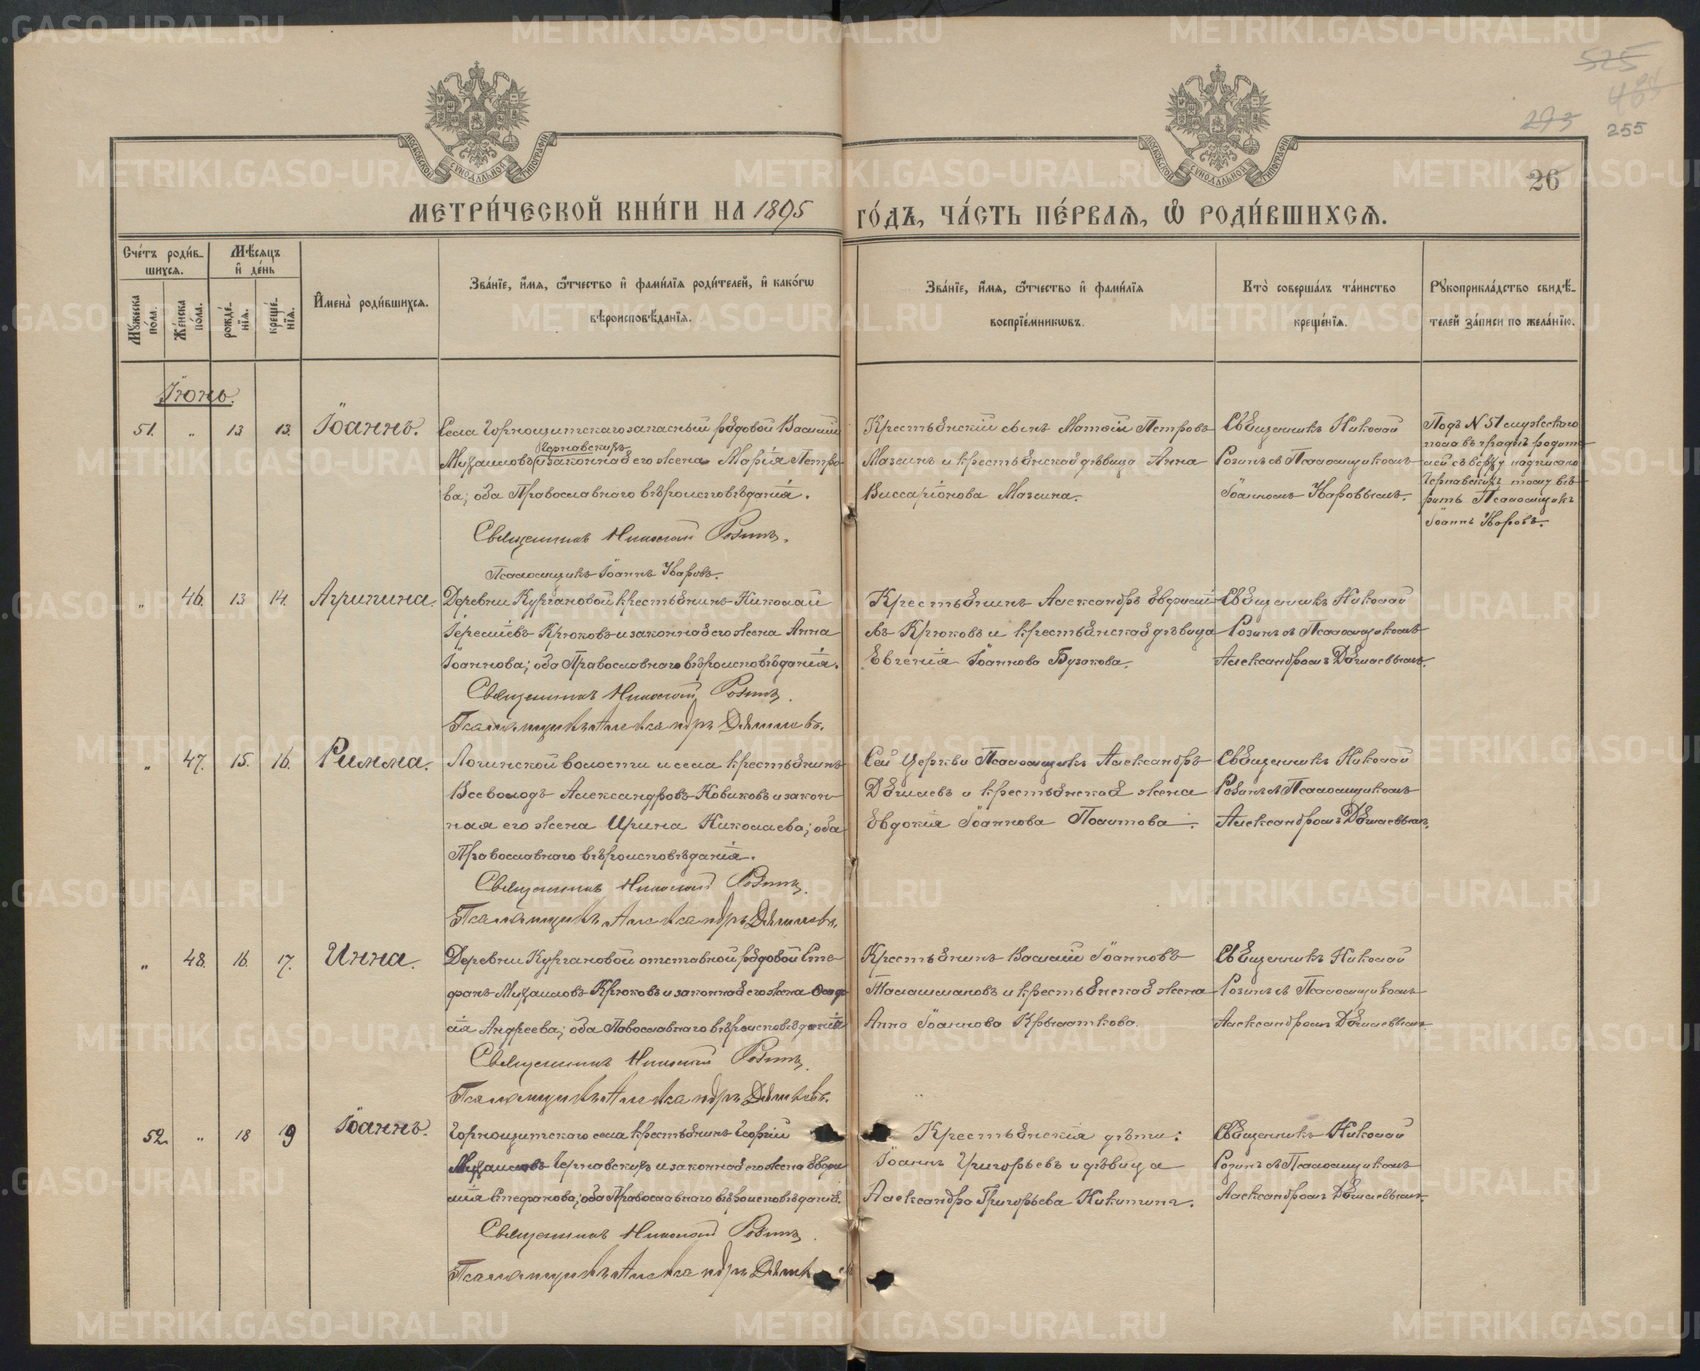 525
46
273
255
26
МЕТРИ́ЧЕСКОЙ КНИ́ГИ НА 1895 ГО́ДЪ, ЧА́СТЬ ПЕ́РВАЯ, Ѽ РОДИ́ВШИХСЯ.
Сче́тъ роди́в-
шихся.
Мѣ́сяцъ
и҆ де́нь
И҆мена̀ роди́вшихся.
Зва́нїе, и҆́мя, ѻ҆́тчество и҆ фами́лїя роди́телей, и҆ како́гѡ
вѣроисповѣ́данїя.
Зва́нїе, и҆́мя, ѻ҆́тчество и҆ фами́лїя
воспрїе́мникѡвъ.
Кто̀ соверша́лъ та́инство
креще́нїя.
Рꙋкоприкла́дство свидѣ́-
телей за́писи по жела́нїю.
Мꙋ́жеска
по́ла.
Же́нска
по́ла.
рожде́-
нїя.
креще́-
нїя.
Іюнь.
51. „ 13 13. Іоаннъ.
Села Горнощитскаго запасный рядовой Василий
Чернавскихъ
Михаиловъ и законная его жена Марія Петро-
ва; оба Православнаго вѣроисповѣданія.
Священникъ Николай Розинъ.
Псаломщикъ Іоаннъ Уваровъ.
Крестьянскій сынъ Матвій Петровъ
Мазеинъ и крестьянская дѣвица Анна
Виссаріонова Мазеина.
Священникъ Николай
Розинъ съ Псаломщикомъ
Іоанномъ Уваровымъ.
Подъ N 51 мужескаго
пола въ графѣ родите-
лей съ верху надписано
Чернавскихъ тому вѣ-
рить Псаломщикъ
Іоаннъ Уваровъ.
„ 46. 13 14. Агрипина.
Деревни Кургановой крестьянинъ Николай
Іереміевъ Крюковъ и законная его жена Анна
Іоаннова; оба Православнаго вѣроисповѣданія.
Священникъ Николай Розинъ.
Псаломщикъ Александръ Дягилевъ.
Крестьянинъ Александръ Евфиміе-
въ Крюковъ и крестьянская дѣвица
Евгенія Іоаннова Бузакова.
Священникъ Николай
Розинъ съ Псаломщикомъ
Александромъ Дягилевымъ.
„ 47. 15. 16. Римма.
Логинской волости и села крестьянинъ
Всеволодъ Александровъ Новиковъ и закон-
ная его жена Ирина Николаева; оба
Православнаго вѣроисповѣданія.
Священникъ Николай Розинъ.
Псаломщикъ Александръ Дягилевъ.
Сей Церкви Псаломщикъ Александръ
Дягилевъ и крестьянская жена
Евдокія Іоаннова Полтова.
Священникъ Николай
Розинъ съ Псаломщикомъ
Александромъ Дягилевымъ.
„ 48. 16. 17. Инна.
Деревни Кургановой отставной рядовой Сте-
фанъ Михаиловъ Крюковъ и законная его жена
Андреева; оба Павославнаго вѣроисповѣданія
Священникъ Николай Розинъ.
Псаломщикъ Александръ Дягилевъ.
Крестьянинъ Василій Іоанновъ
Талашмановъ и крестьянская жена
Анна Іоаннова Крылаткова.
Священникъ Николай
Розинъ съ Псаломщикомъ
Александромъ Дягилевымъ
52. „ 18 19 Іоаннъ.
Горнощитскаго села крестьянинъ Георгій
Михаиловъ Чернавскихъ и законная его жена Евфи-
мія Стефанова; оба Православнаго вѣроисповѣданія.
Священникъ Николай Розинъ.
Псаломщикъ Александръ
Крестьянскія дѣти:
Іоаннъ Григорьевъ и дѣвица
Александра Григорьева Никитины.
Священникъ Николай
Розинъ съ Псаломщикомъ
Александромъ Дягилевымъ.
METRIKI.GASO-URAL.RU